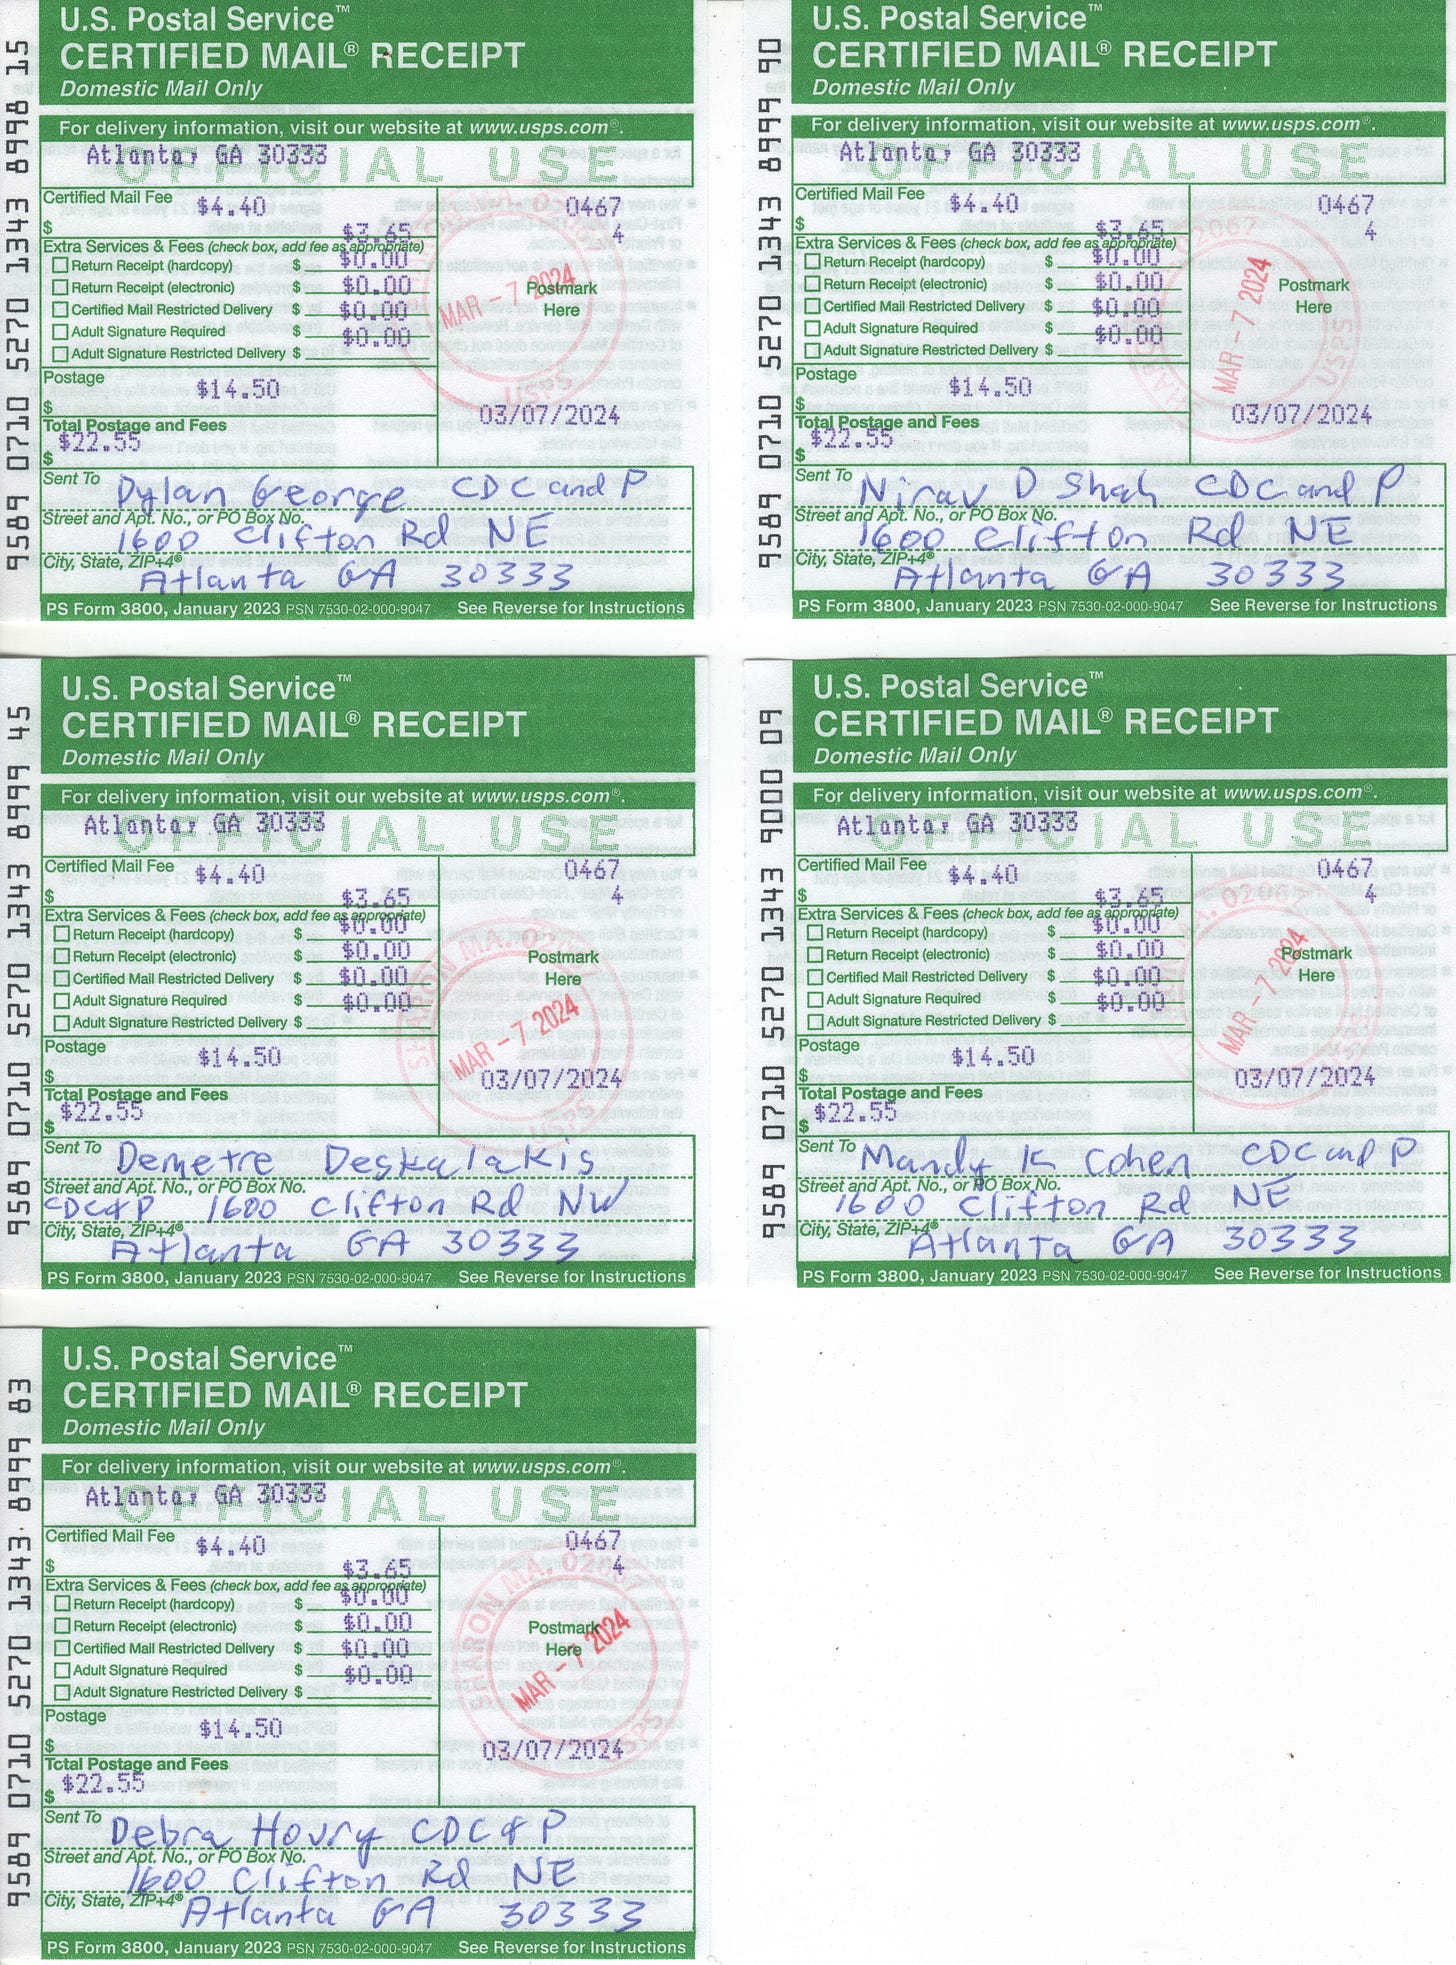 U.S. Postal Service™
CERTIFIED MAIL® RECEIPT
Domestic Mail Only
For delivery information, visit our website at www.usps.com®.
OFFICIAL USE
Atlanta, GA 30333
Certified Mail Fee $4.40
$
$3.65
0467
4
Extra Services & Fees (check box, add fee as appropriate)
Return Receipt (hardcopy) $ $0.00
Return Receipt (electronic) $ $0.00
Certified Mail Restricted Delivery $ $0.00
Adult Signature Required $ $0.00
Adult Signature Restricted Delivery $
Postmark
Here
MAR - 7 2024
USPS
Postage
$14.50
$
03/07/2024
Total Postage and Fees
$22.55
$
Sent To Dylan George CDC and P
Street and Apt. No., or PO Box No.
1600 Clifton Rd NE
City, State, ZIP+4®
Atlanta GA 30333
PS Form 3800, January 2023 PSN 7530-02-000-9047 See Reverse for Instructions
9589 0710 5270 1343 8998 15
U.S. Postal Service™
CERTIFIED MAIL® RECEIPT
Domestic Mail Only
For delivery information, visit our website at www.usps.com®.
OFFICIAL USE
Atlanta, GA 30333
Certified Mail Fee $4.40
$
$3.65
0467
4
Extra Services & Fees (check box, add fee as appropriate)
Return Receipt (hardcopy) $ $0.00
Return Receipt (electronic) $ $0.00
Certified Mail Restricted Delivery $ $0.00
Adult Signature Required $ $0.00
Adult Signature Restricted Delivery $
Postmark
Here
MAR - 7 2024
USPS
Postage
$14.50
$
03/07/2024
Total Postage and Fees
$22.55
$
Sent To Nirav D Shah CDC and P
Street and Apt. No., or PO Box No.
1600 Clifton Rd NE
City, State, ZIP+4®
Atlanta GA 30333
PS Form 3800, January 2023 PSN 7530-02-000-9047 See Reverse for Instructions
9589 0710 5270 1343 8999 90
U.S. Postal Service™
CERTIFIED MAIL® RECEIPT
Domestic Mail Only
For delivery information, visit our website at www.usps.com®.
OFFICIAL USE
Atlanta, GA 30333
Certified Mail Fee $4.40
$
$3.65
0467
4
Extra Services & Fees (check box, add fee as appropriate)
Return Receipt (hardcopy) $ $0.00
Return Receipt (electronic) $ $0.00
Certified Mail Restricted Delivery $ $0.00
Adult Signature Required $ $0.00
Adult Signature Restricted Delivery $
Postmark
Here
SHARON MA.
MAR - 7 2024
USPS
Postage
$14.50
$
03/07/2024
Total Postage and Fees
$22.55
$
Sent To Demetre Deskalakis
Street and Apt. No., or PO Box No.
CDC&P 1600 Clifton Rd NW
City, State, ZIP+4®
Atlanta GA 30333
PS Form 3800, January 2023 PSN 7530-02-000-9047 See Reverse for Instructions
9589 0710 5270 1343 8999 45
U.S. Postal Service™
CERTIFIED MAIL® RECEIPT
Domestic Mail Only
For delivery information, visit our website at www.usps.com®.
OFFICIAL USE
Atlanta, GA 30333
Certified Mail Fee $4.40
$
$3.65
0467
4
Extra Services & Fees (check box, add fee as appropriate)
Return Receipt (hardcopy) $ $0.00
Return Receipt (electronic) $ $0.00
Certified Mail Restricted Delivery $ $0.00
Adult Signature Required $ $0.00
Adult Signature Restricted Delivery $
Postmark
Here
MA. 02067
MAR - 7 2024
Postage
$14.50
$
03/07/2024
Total Postage and Fees
$22.55
$
Sent To Mandy K Cohen CDC and P
Street and Apt. No., or PO Box No.
1600 Clifton Rd NE
City, State, ZIP+4®
Atlanta GA 30333
PS Form 3800, January 2023 PSN 7530-02-000-9047 See Reverse for Instructions
9589 0710 5270 1343 9000 09
U.S. Postal Service™
CERTIFIED MAIL® RECEIPT
Domestic Mail Only
For delivery information, visit our website at www.usps.com®.
OFFICIAL USE
Atlanta, GA 30333
Certified Mail Fee $4.40
$
$3.65
0467
4
Extra Services & Fees (check box, add fee as appropriate)
Return Receipt (hardcopy) $ $0.00
Return Receipt (electronic) $ $0.00
Certified Mail Restricted Delivery $ $0.00
Adult Signature Required $ $0.00
Adult Signature Restricted Delivery $
Postmark
Here
SHARON MA.
MAR - 7 2024
USPS
Postage
$14.50
$
03/07/2024
Total Postage and Fees
$22.55
$
Sent To Debra Houry CDC & P
Street and Apt. No., or PO Box No.
1600 Clifton Rd NE
City, State, ZIP+4®
Atlanta GA 30333
PS Form 3800, January 2023 PSN 7530-02-000-9047 See Reverse for Instructions
9589 0710 5270 1343 8999 83